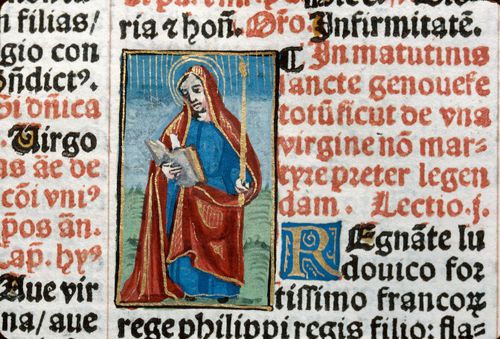 n filias/
gio con
ñdictꝰ.
õi dñica
Virgo
as ãe de
cõi vniꝰ
põs añ.
Cap. hyꝰ
Aue vir
na/ aue
ria ⁊ hoñ. Oro Infirmitatẽ.
¶ In matutinis
sancte genouefe
totũ ficut de vna
virgine nõ mar⸗
tyre preter legen
dam. Lectio.j.
REgnãte lu
douico for
tissimo francoꝝ
rege philippi regis filio: fla⸗